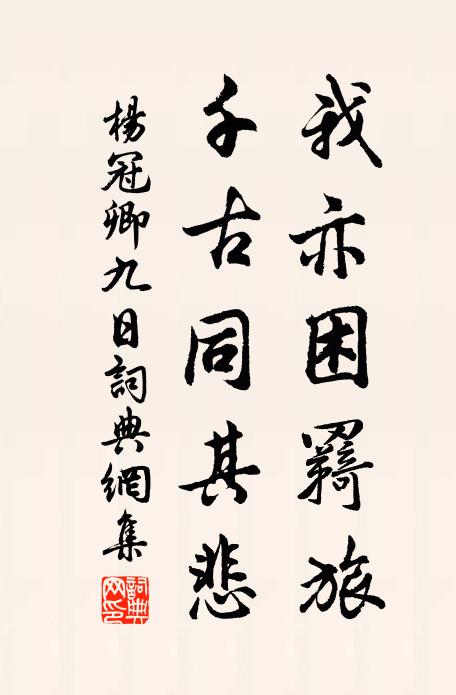 我亦困羇旅
千古同其悲
楊冠卿九日詞典網集
詞典网印